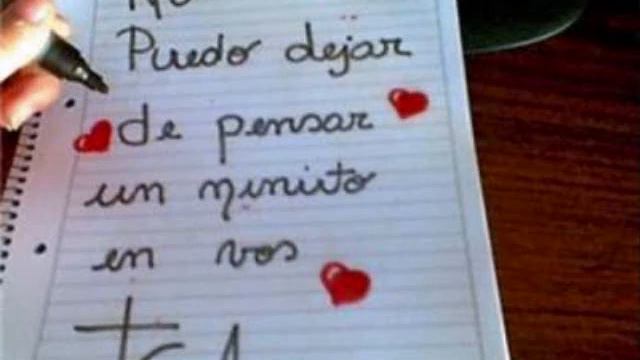 Puedo dejar
de pensar
un minuto
en vos